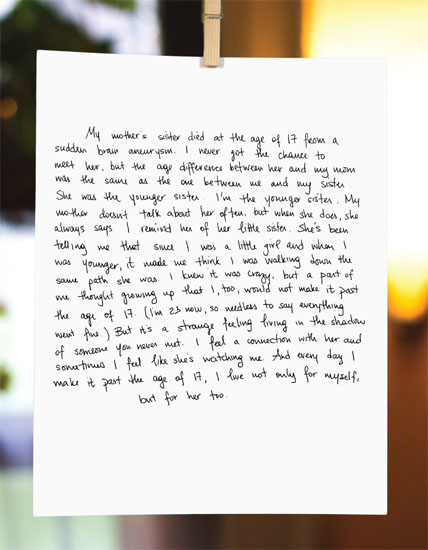 My mother's sister died at the age of 17 from a
sudden brain aneurysm. I never got the chance to
meet her, but the age difference between her and my mom
was the same as the one between me and my sister.
She was the younger sister. I'm the younger sister. My
mother doesn't talk about her often, but when she does, she
always says I remind her of her little sister. She's been
telling me that since I was a little girl and when I
was younger, it made me think I was walking down the
same path she was. I knew it was crazy, but a part of
me thought growing up that I, too, would not make it past
the age of 17. (I'm 23 now, so needless to say everything
went fine.) But it's a strange feeling living in the shadow
of someone you never met. I feel a connection with her and
sometimes I feel like she's watching me. And every day I
make it past the age of 17, I live not only for myself,
but for her too.